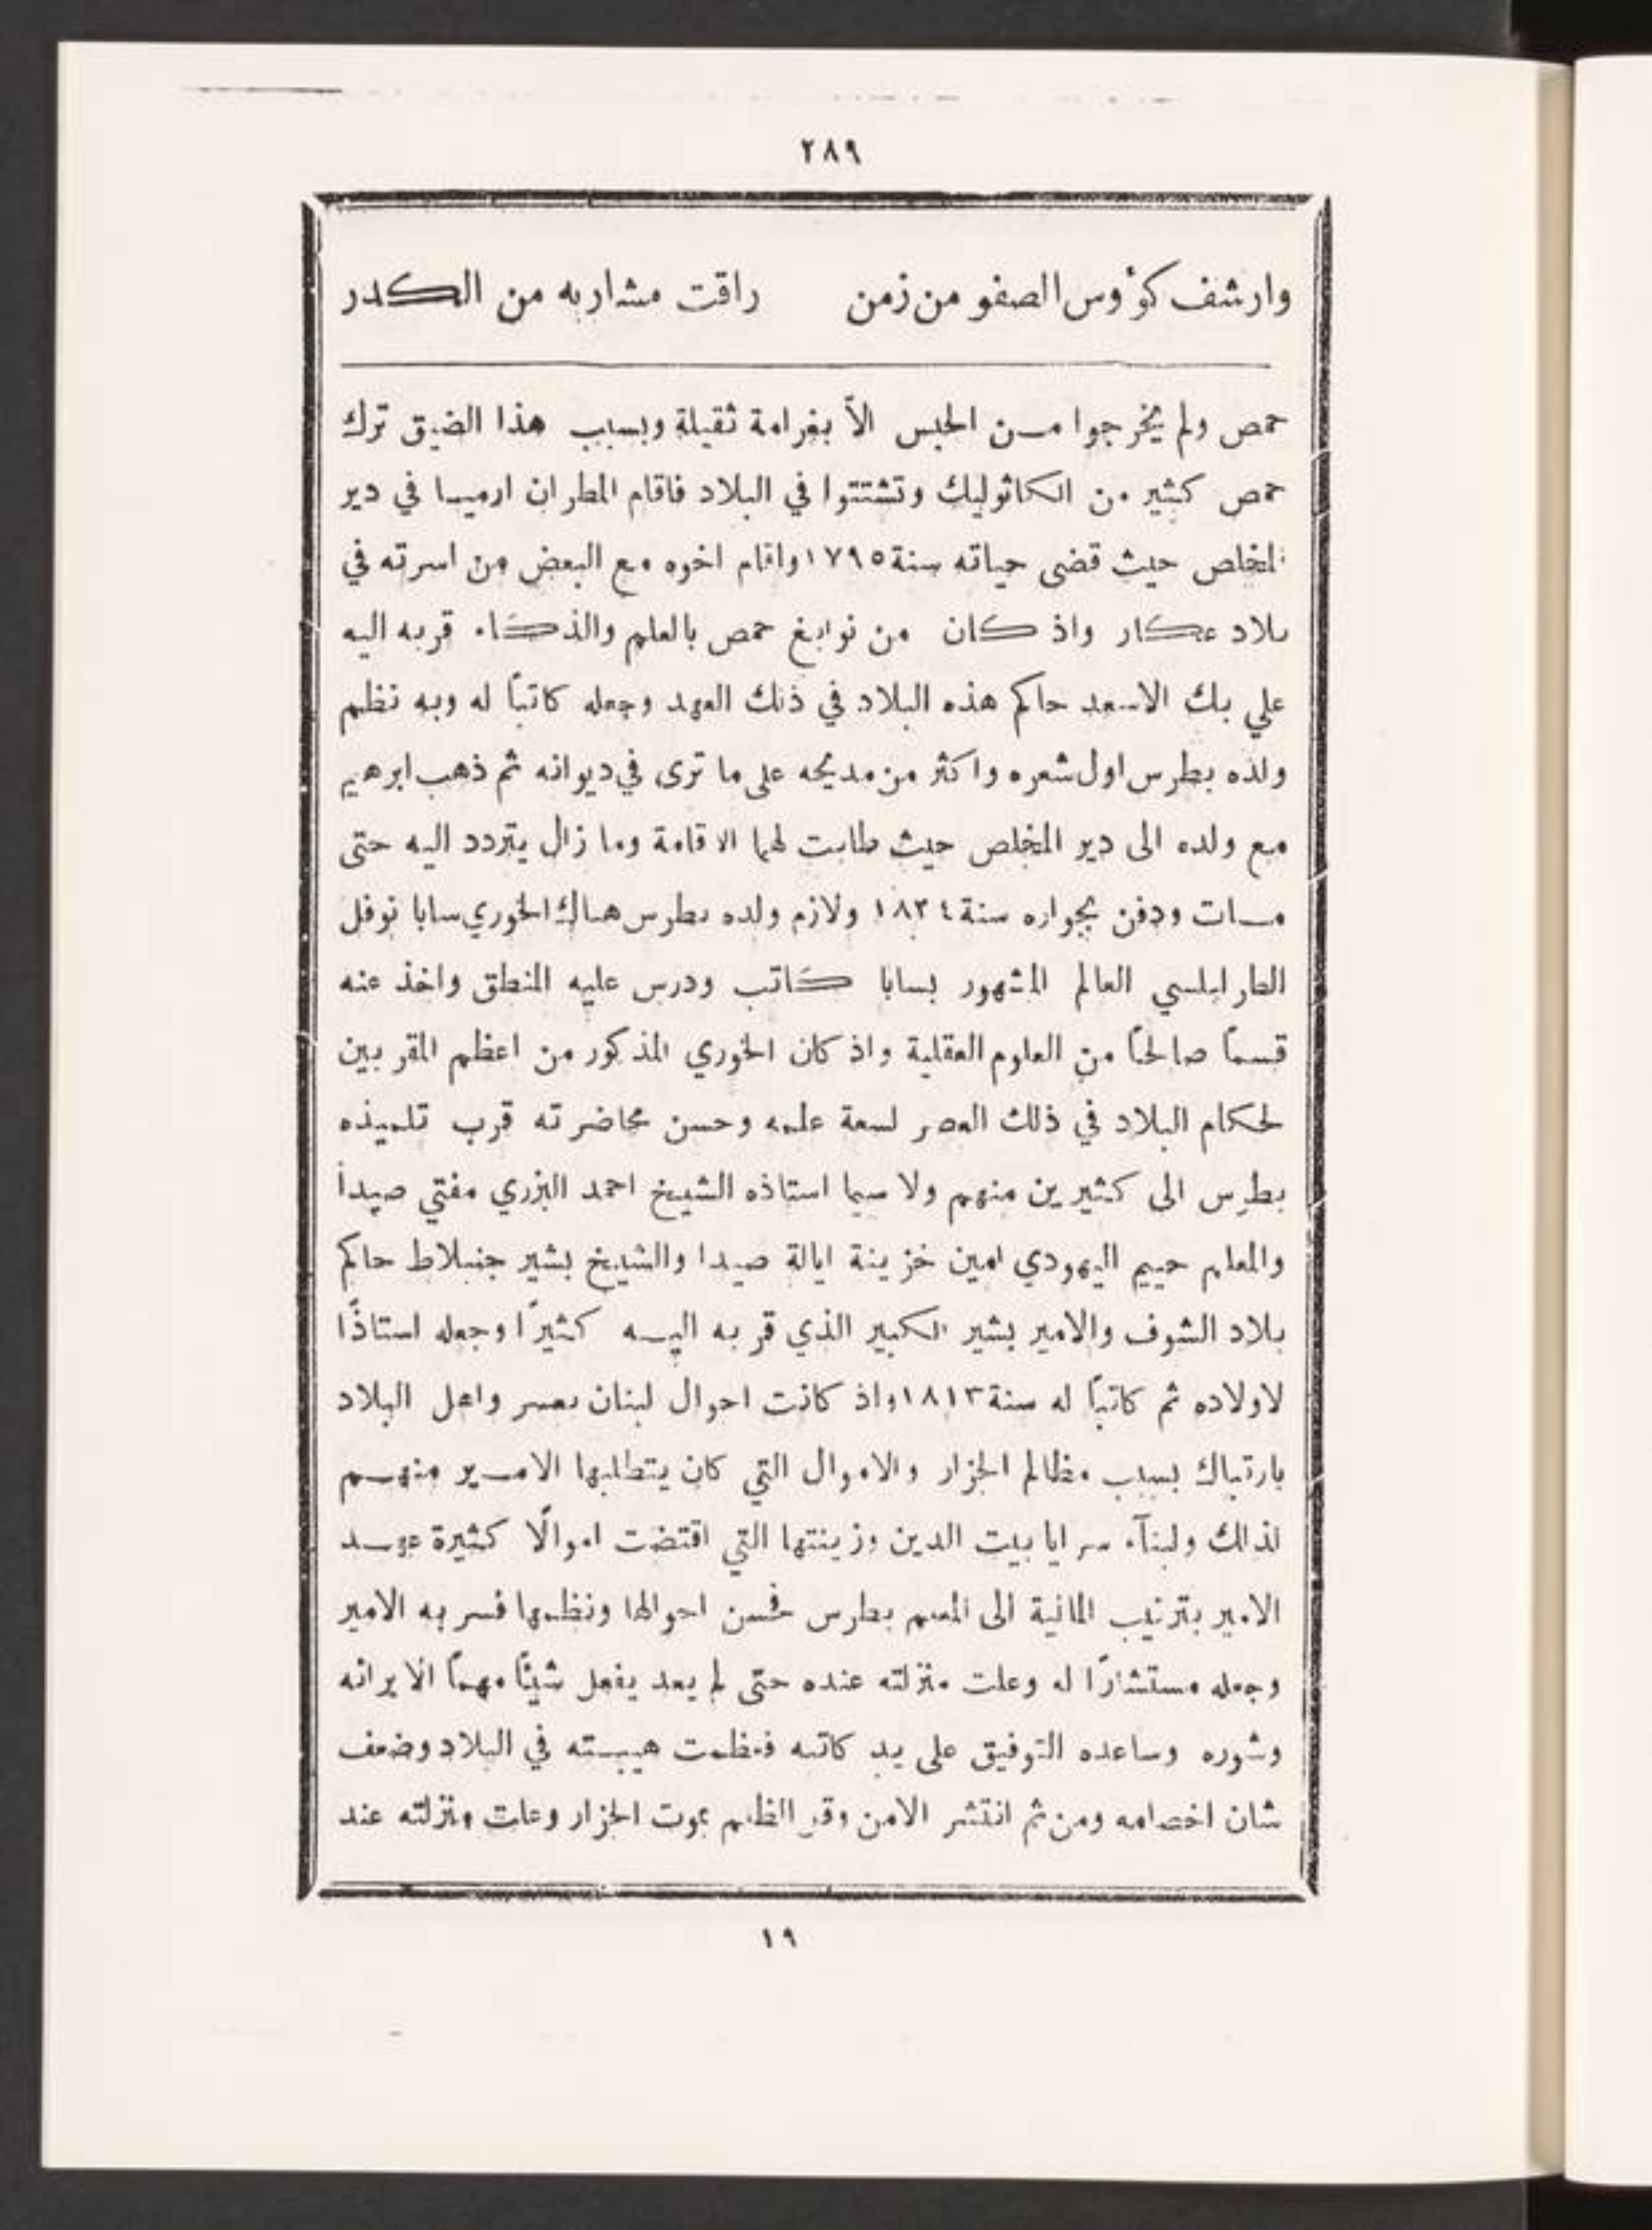 ٢٨٩
وارشف كؤوس الصفو من زمن راقت مشاربه من الكدر
حمص ولم يخرجوا من الحبس الاّ بغرامة ثقيلة وبسبب هذا الضيق ترك
حمص كثير من الكاثوليك وتشتتوا في البلاد فاقام المطران ارميا في دير
المخلص حيث قضى حياته سنة ١٧٩٥ واقام اخوه مع البعض من اسرته في
بلاد عكار واذ كان من نوابغ حمص بالعلم والذكاء قربه اليه
علي بك الاسعد حاكم هذه البلاد في ذلك العهد وجعله كاتبًا له وبه نظم
ولده بطرس اول شعره واكثر من مديحه على ما ترى في ديوانه ثم ذهب ابرهيم
مع ولده الى دير المخلص حيث طابت لهما الاقامة وما زال يتردد اليه حتى
مات ودفن بجواره سنة ١٨٣٤ ولازم ولده بطرس هناك الخوري سابا نوفل
الطرابلسي العالم المشهور بسابا كاتب ودرس عليه المنطق واخذ عنه
قسمًا صالحًا من العلوم العقلية واذ كان الخوري المذكور من اعظم المقربين
لحكام البلاد في ذلك العصر لسعة علمه وحسن محاضرته قرب تلميذه
بطرس الى كثيرين منهم ولا سيما استاذه الشيخ احمد البزري مفتي صيدا
والمعلم حييم اليهودي امين خزينة ايالة صيدا والشيخ بشير جنبلاط حاكم
بلاد الشوف والامير بشير الكبير الذي قربه اليه كثيرًا وجعله استاذًا
لاولاده ثم كاتبًا له سنة ١٨١٣ واذ كانت احوال لبنان بعسر واهل البلاد
بارتباك بسبب مظالم الجزار والاموال التي كان يتطلبها الامير منهم
لذلك ولبنآء سرايا بيت الدين وزينتها التي اقتضت اموالًا كثيرة عهد
الامير بترتيب المالية الى المعلم بطرس فحسن احوالها ونظمها فسر به الامير
وجعله مستشارًا له وعلت منزلته عنده حتى لم يعد يفعل شيئًا مهمًا الا برائه
وشوره وساعده التوفيق على يد كاتبه فعظمت هيبته في البلاد وضعف
شان اخصامه ومن ثم انتشر الامن وقل الظلم بموت الجزار وعلت منزلته عند
١٩